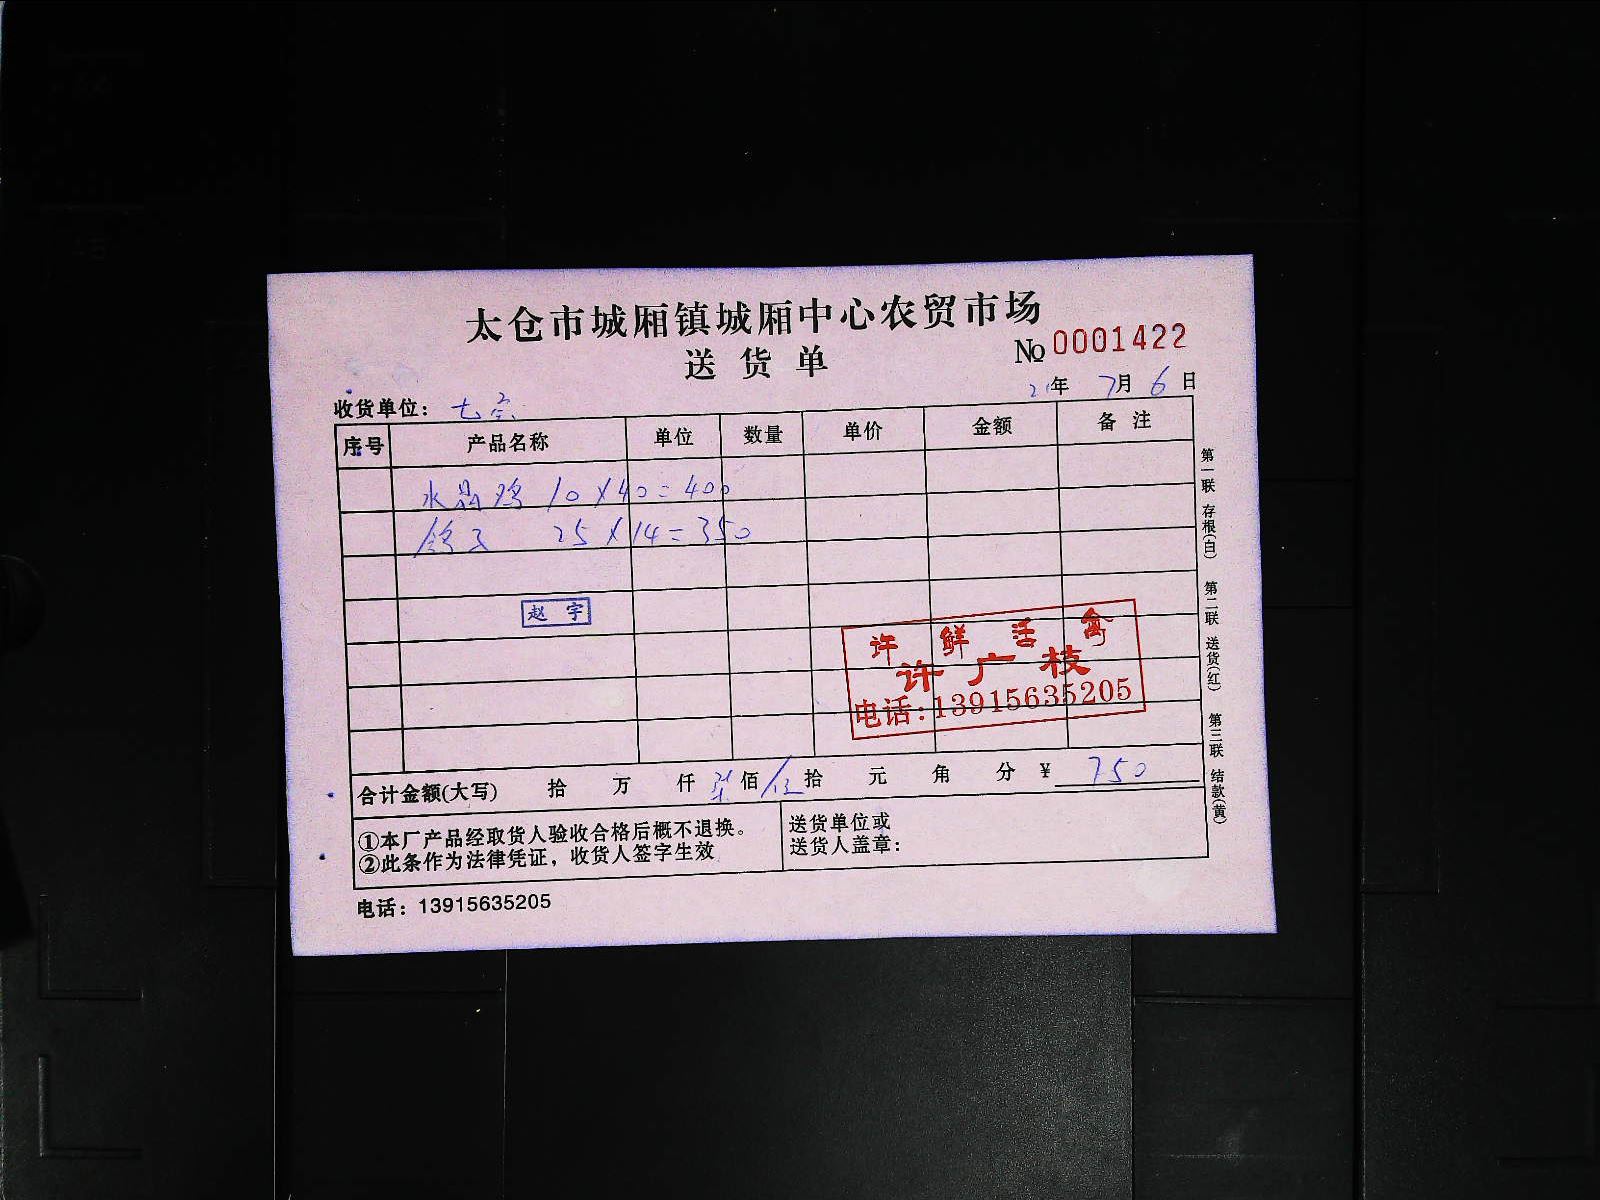 太仓市城厢镇城厢中心农贸市场
送货单
No 0001422
21年 7月 6日
收货单位：七宗
序号 产品名称 单位 数量 单价 金额 备注
水晶鸡 10×40=400
鸽子 25×14=350
赵宇
许鲜活禽
许广枝
电话:13915635205
合计金额(大写) 拾 万 仟 柒佰 伍拾 元 角 分 ¥ 750
①本厂产品经取货人验收合格后概不退换。
②此条作为法律凭证，收货人签字生效
送货单位或
送货人盖章：
电话：13915635205
第一联 存根(白) 第二联 送货(红) 第三联 结款(黄)